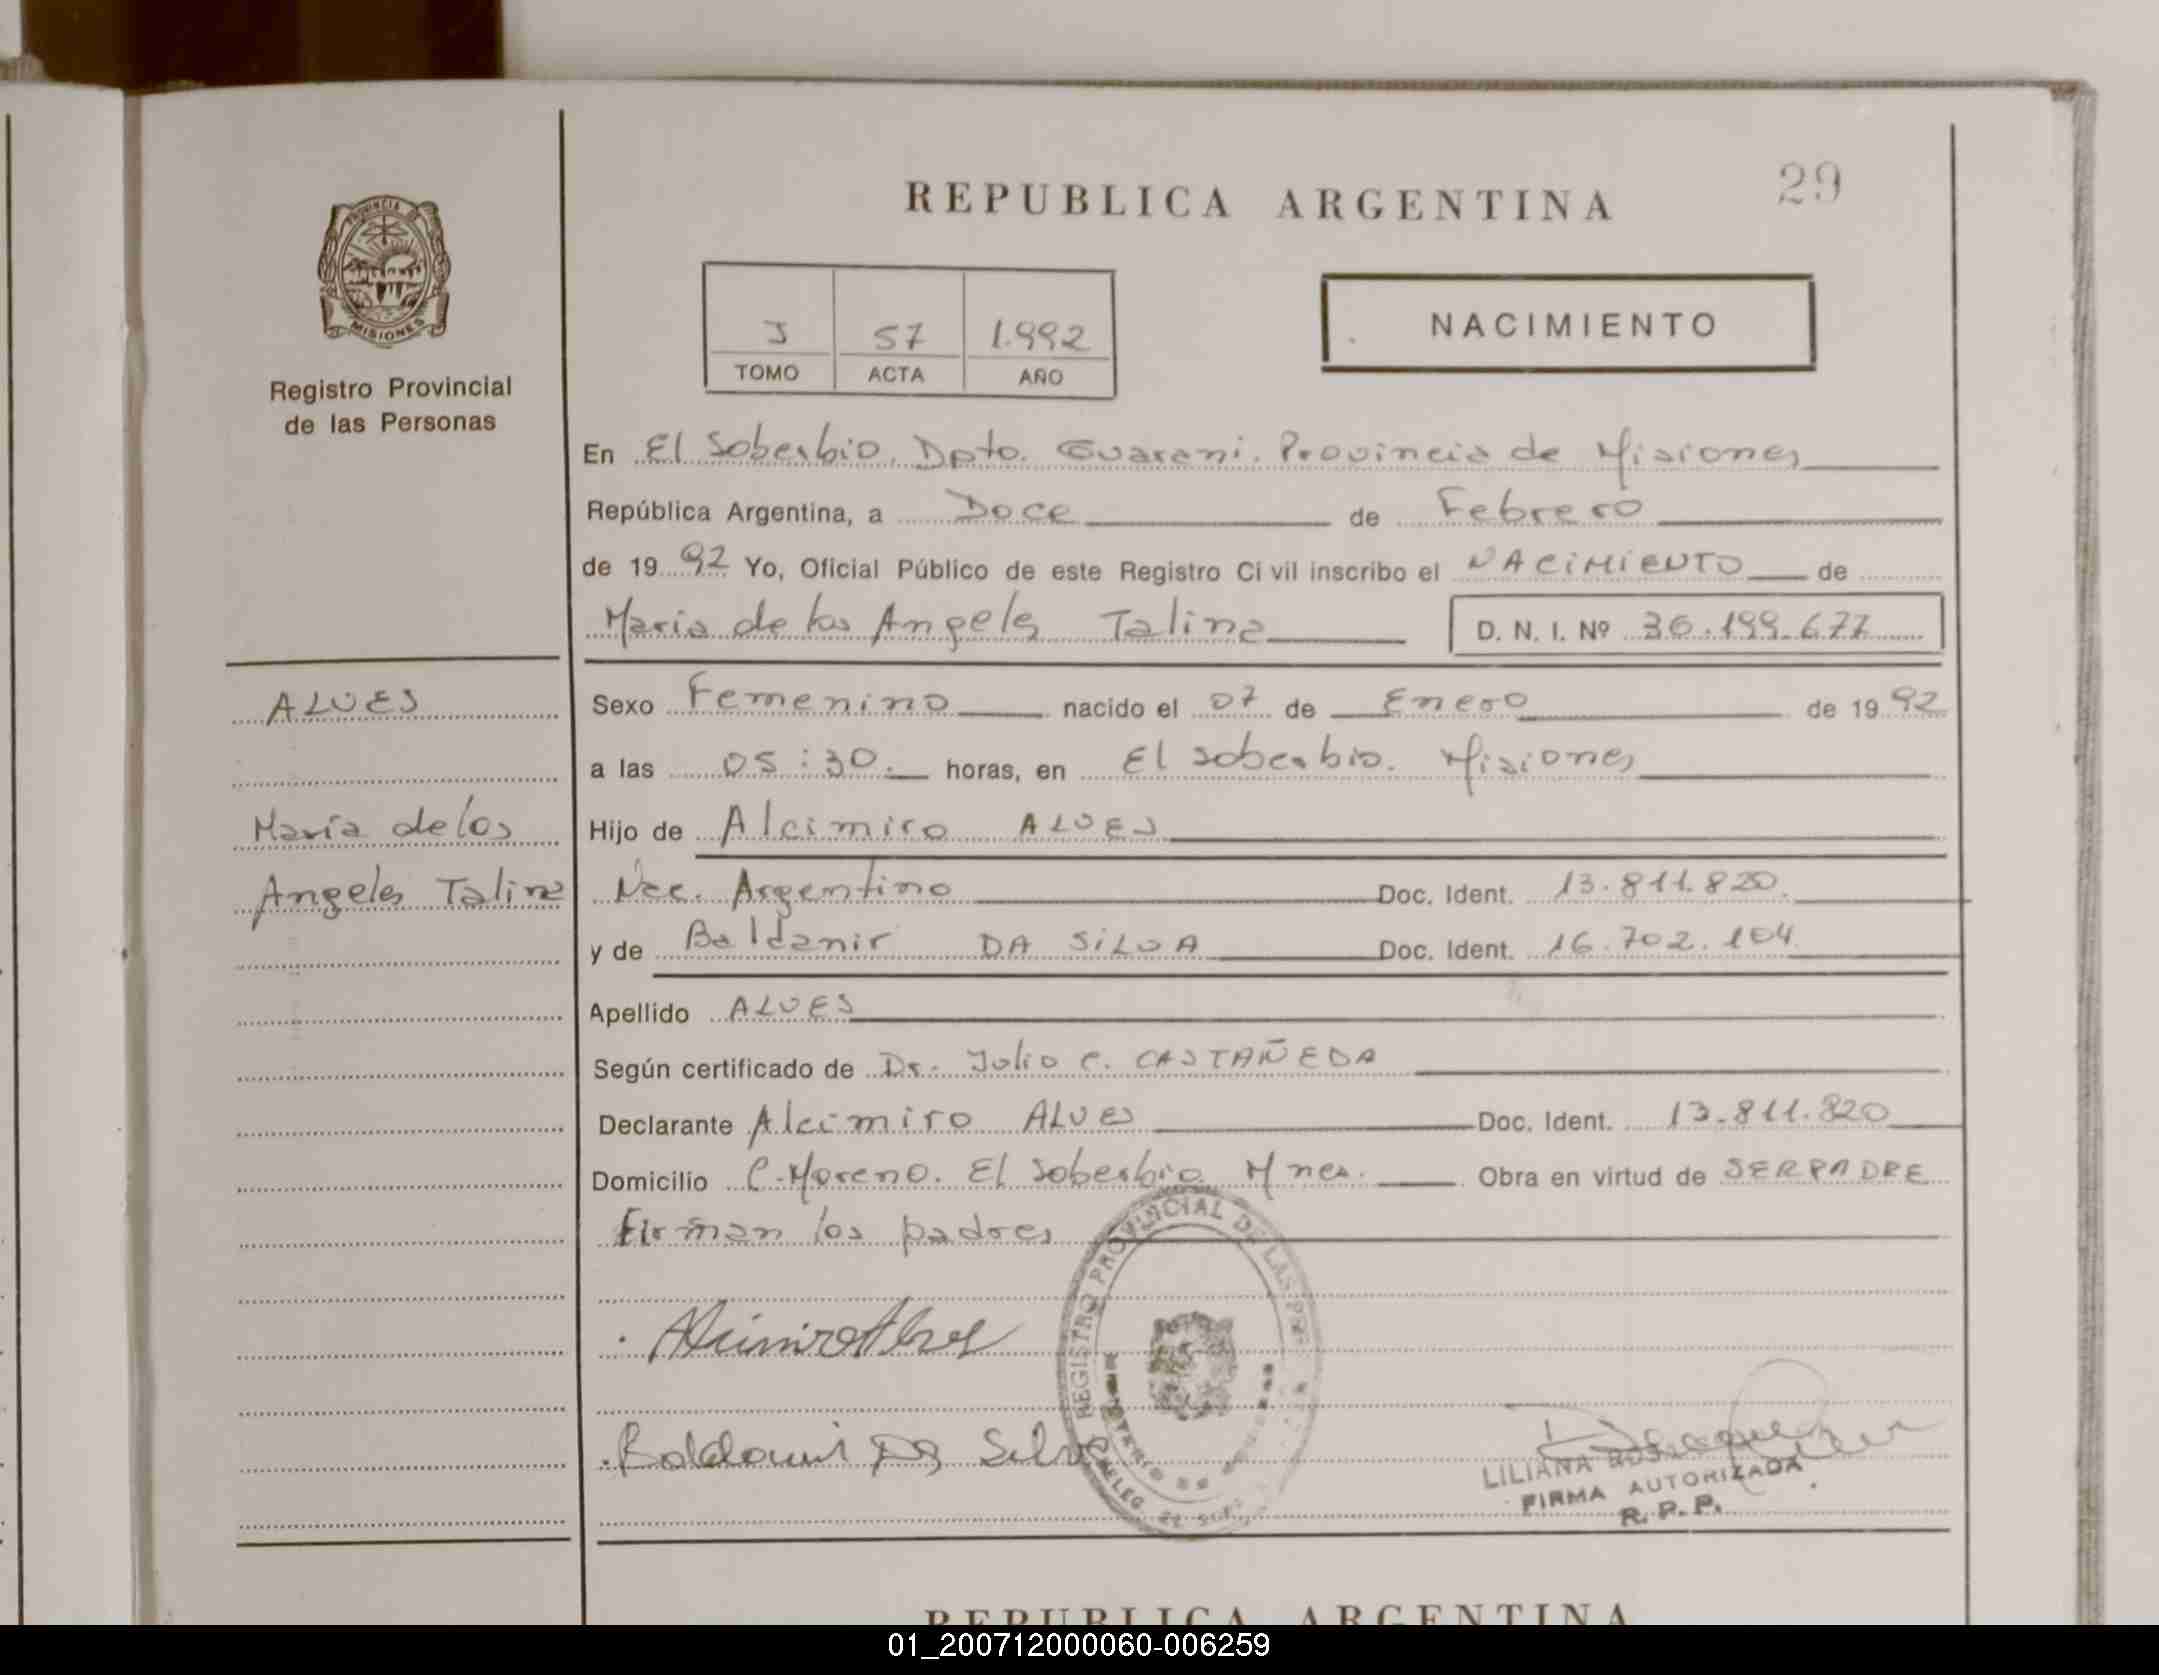 REPUBLICA ARGENTINA
29
PROVINCIA DE
MISIONES
Registro Provincial
de las Personas
J 57 1.992
TOMO ACTA AÑO
NACIMIENTO
En El Soberbio. Dpto. Guarani. Provincia de Misiones
República Argentina, a Doce de Febrero
de 19 92 Yo, Oficial Público de este Registro Civil inscribo el NACIMIENTO de
Maria de los Angeles Talina D. N. I. Nº 36.199.677
ALVES
María de los
Angeles Talina
Sexo Femenino nacido el 07 de Enero de 19 92
a las 05:30. horas, en El Soberbio. Misiones
Hijo de Alcimiro ALVES
Nac. Argentino Doc. Ident. 13.811.820.
y de Baldanir DA SILVA Doc. Ident. 16.702.104
Apellido ALVES
Según certificado de Dr. Julio C. CASTAÑEDA
Declarante Alcimiro ALVES Doc. Ident. 13.811.820
Domicilio C. Moreno. El Soberbio Mnes. Obra en virtud de SER PADRE
Firman los padres
REGISTRO PROVINCIAL DE LAS
Alcimiro Alves
Baldanir Da Silva
LILIANA
FIRMA AUTORIZADA
R. P. P.
REPUBLICA ARGENTINA
01_200712000060-006259